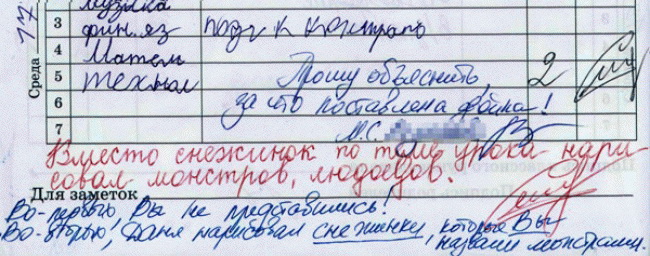 17
Среда
Музыка
3 фин. яз подг к контроль
4 Матем
5 технол Прошу объяснить, 2
6 за что поставлена двойка!
7 М.С.
Вместо снежинок по теме урока нари-
совал монстров, людоедов.
Для заметок
Во-первых, Вы не представились!
Во-вторых, Даня нарисовал снежинки, которые Вы
назвали монстрами.